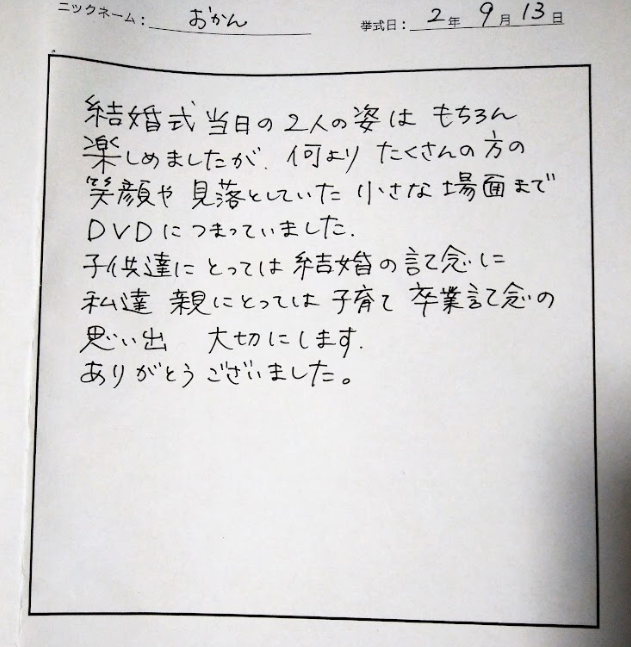 ニックネーム： おかん
挙式日： 2年 9月 13日
結婚式当日の2人の姿は もちろん
楽しめましたが、何より たくさんの方の
笑顔や 見落としていた 小さな 場面まで
DVDに つまっていました.
子供達に とっては 結婚の 記念に
私達 親にとっては 子育て 卒業記念の
思い出 大切にします.
ありがとう ございました。